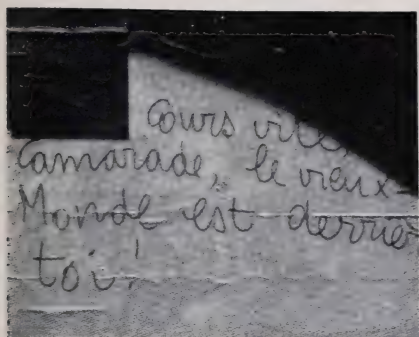 Cours vite,
Camarade, le vieux
Monde est derriè
toi!